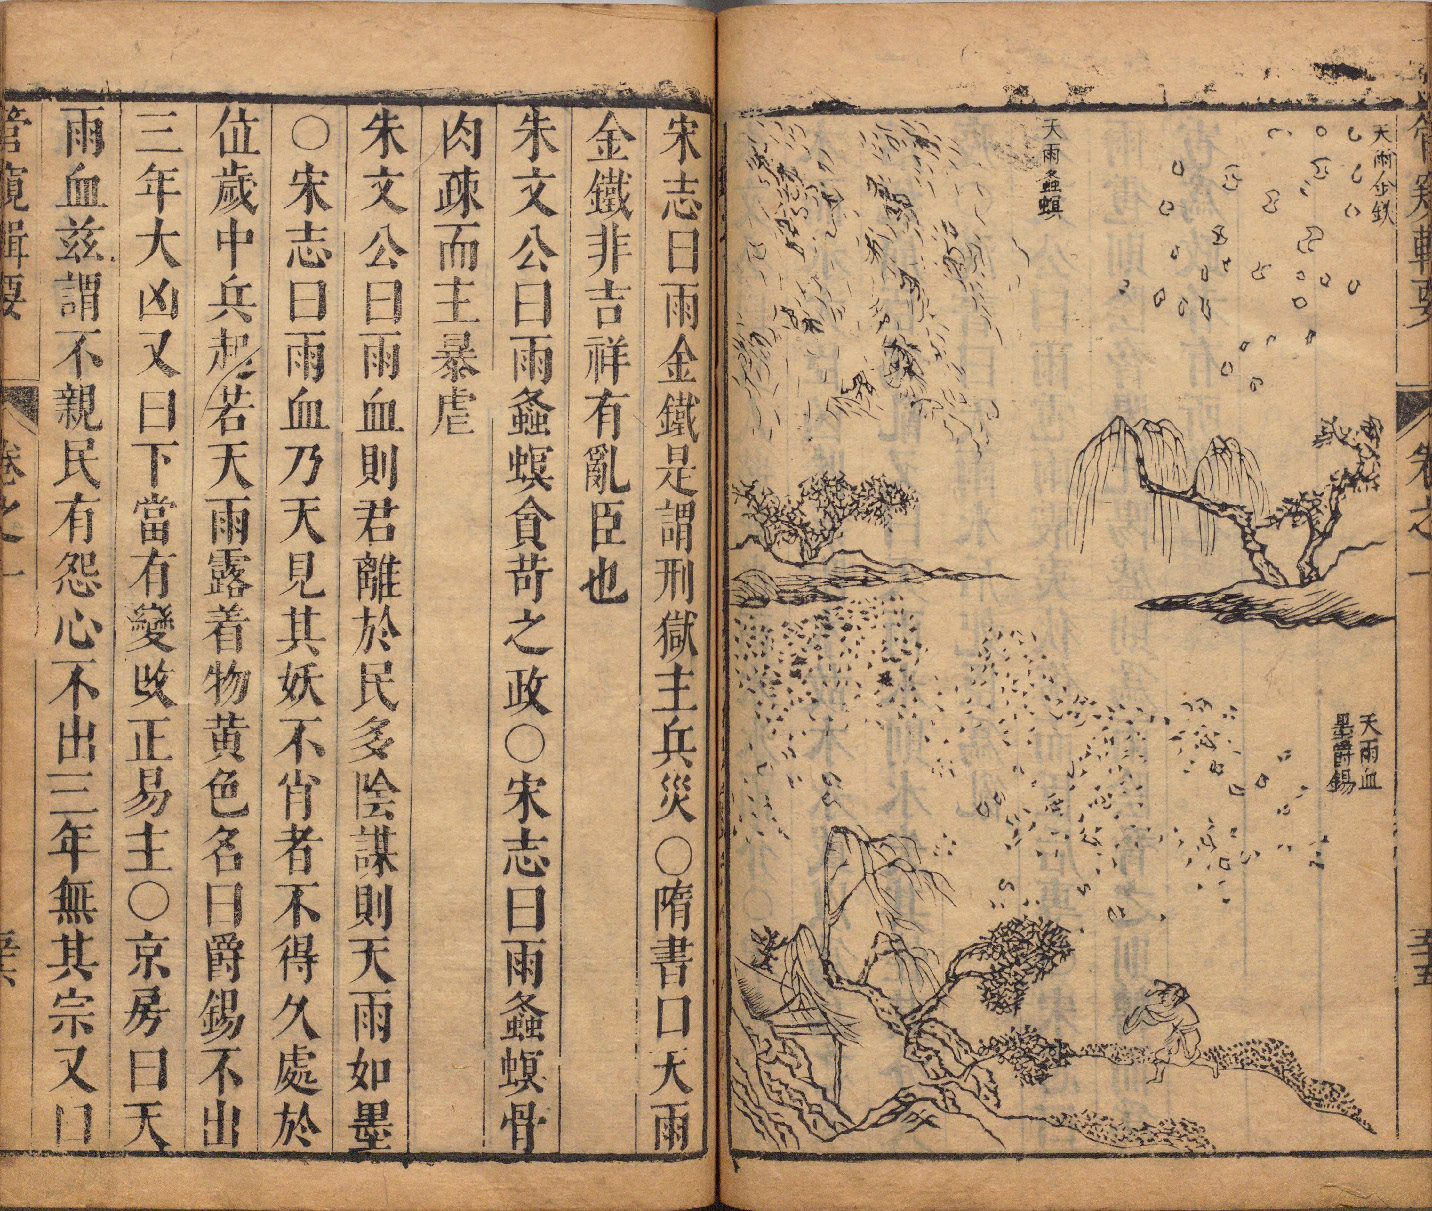 天雨金鉄
天雨螽螟
天雨血
墨爵錫
卷之一
五十五
宋志曰雨金鐵是謂刑獄主兵災○隋書曰天雨
金鐵非吉祥有亂臣也
朱文公曰雨螽螟貪苛之政○宋志曰雨螽螟骨
肉疎而主暴虐
朱文公曰雨血則君離於民多陰謀則天雨如墨
○宋志曰雨血乃天見其妖不肖者不得久處於
位歲中兵起若天雨露着物黄色名曰爵錫不出
三年大凶又曰下當有變改正易主○京房曰天
雨血兹謂不親民有怨心不出三年無其宗又曰
管窺輯要
卷之一